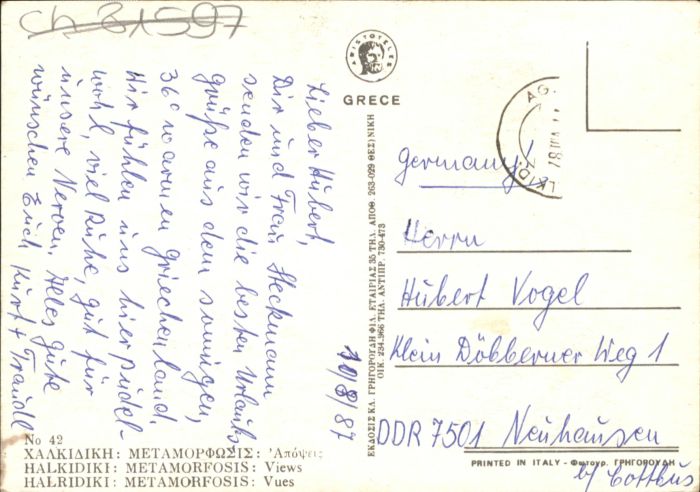 Ch 31597
Lieber Hubert,
Dir und Frau Steckmann
senden wir die besten Urlaubs
grüße aus dem sonnigen,
36° warmen Griechenland.
Wir fühlen uns hier pudel-
wohl, viel Ruhe, gut für
unsere Nerven. Alles gute
wünschen Euch Kurt + Traudl
10/8/87
No 42
ΧΑΛΚΙΔΙΚΗ: ΜΕΤΑΜΟΡΦΩΣΙΣ: Ἀπόψεις
HALKIDIKI: METAMORFOSIS: Views
HALRIDIKI: METAMORFOSIS: Vues
ΕΚΔΟΣΙΣ ΚΛ. ΓΡΗΓΟΡΟΥΔΗ ΦΙΛ. ΕΤΑΙΡΙΑΣ 35 ΤΗΛ. ΑΠΟΘ. 263-029 ΘΕΣ)ΝΙΚΗ
ΟΙΚ. 234.966 ΤΗΛ. ΑΝΤΙΠΡ. 730-473
ARISTOTELES
GRECE
AG.
LKID
VIII 87
Germany!
Herrn
Hubert Vogel
Klein Döbberner Weg 1
DDR 7501 Neuhausen
b/ Cottbus
PRINTED IN ITALY - Φωτογρ. ΓΡΗΓΟΡΟΥΔΗ